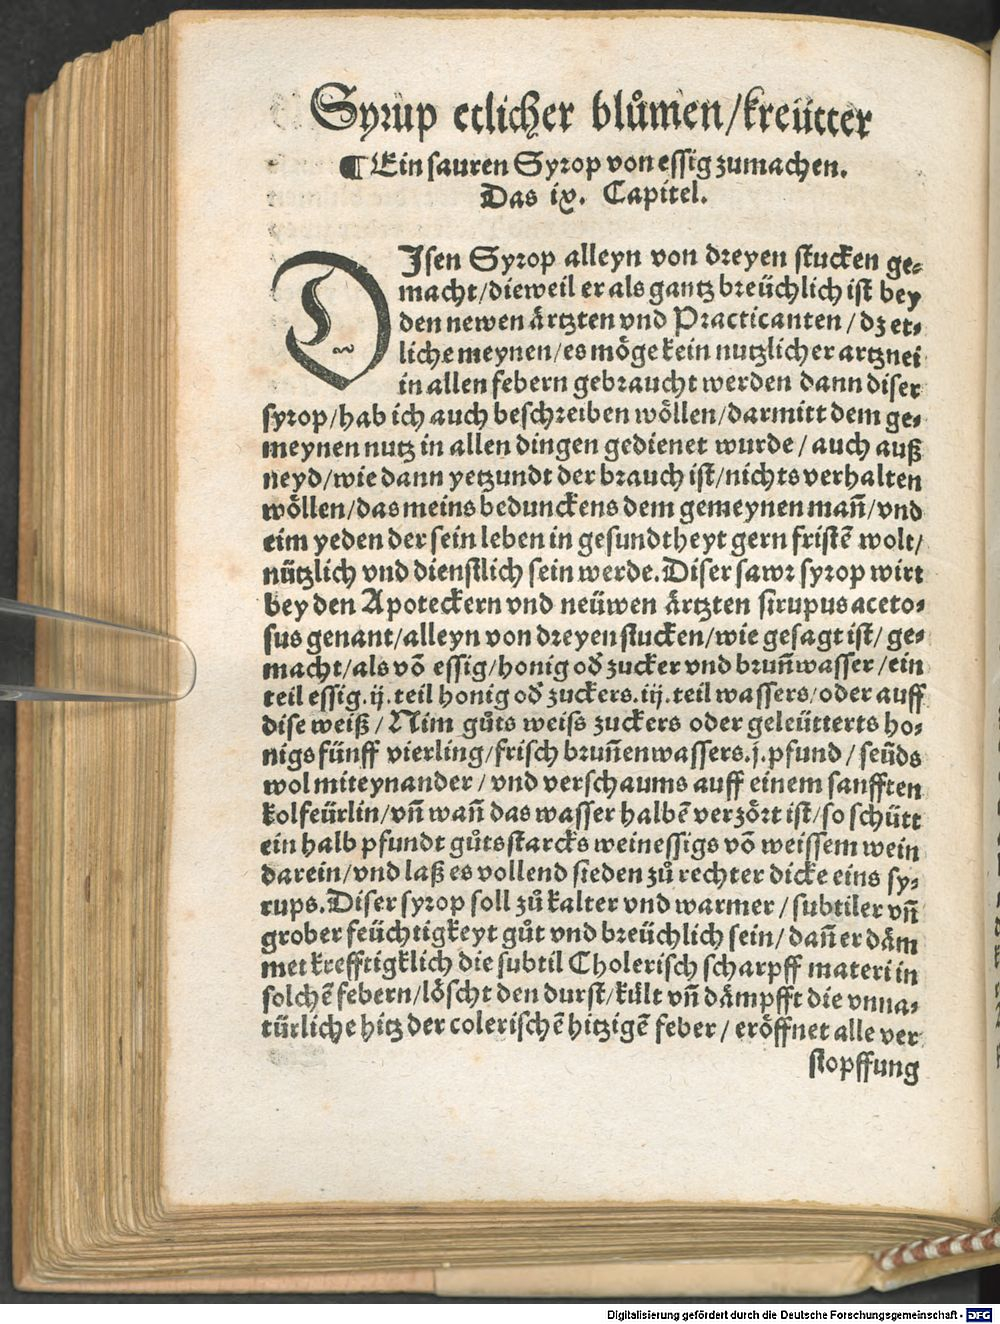 Syrup etlicher blůmen/kreütter
¶ Ein sauren Syrop von essig zumachen.
Das ix. Capitel.
DIsen Syrop alleyn von dreyen stucken ge⸗
macht/dieweil er als gantz breüchlich ist bey
den newen ärtzten vnd Practicanten / dz et⸗
liche meynen/es möge kein nutzlicher artznei
in allen febern gebraucht werden dann diser
syrop/hab ich auch beschreiben wöllen/darmitt dem ge⸗
meynen nutz in allen dingen gedienet wurde / auch auß
neyd/wie dann yetzundt der brauch ist/nichts verhalten
wöllen/das meins bedunckens dem gemeynen mañ/vnd
eim yeden der sein leben in gesundtheyt gern fristē wolt/
nützlich vnd dienstlich sein werde. Diser sawr syrop wirt
bey den Apoteckern vnd neüwen ärtzten sirupus aceto⸗
sus genant/alleyn von dreyen stucken/wie gesagt ist/ ge⸗
macht/als võ essig/honig oď zucker vnd bruñwasser /ein
teil essig.ij.teil honig oď zuckers.iij.teil wassers/oder auff
dise weiß / Nim gůts weiss zuckers oder geleütterts ho⸗
nigs fünff vierling/frisch bruñenwassers.j.pfund / seüds
wol miteynander / vnd verschaums auff einem sanfften
kolfeürlin/vñ wañ das wasser halbē verzört ist/so schütt
ein halb pfundt gůts starcks weinessigs võ weissem wein
darein/vnd laß es vollend sieden zů rechter dicke eins sy⸗
rups. Diser syrop soll zů kalter vnd warmer / subtiler vñ
grober feüchtigkeyt gůt vnd breüchlich sein/ dañ er däm
met krefftigklich die subtil Cholerisch scharpff materi in
solchē febern/löscht den durst/kült vñ dämpfft die vnna⸗
türliche hitz der colerischē hitzigē feber / eröffnet alle ver
stopffung
Digitalisierung gefördert durch die Deutsche Forschungsgemeinschaft - DFG